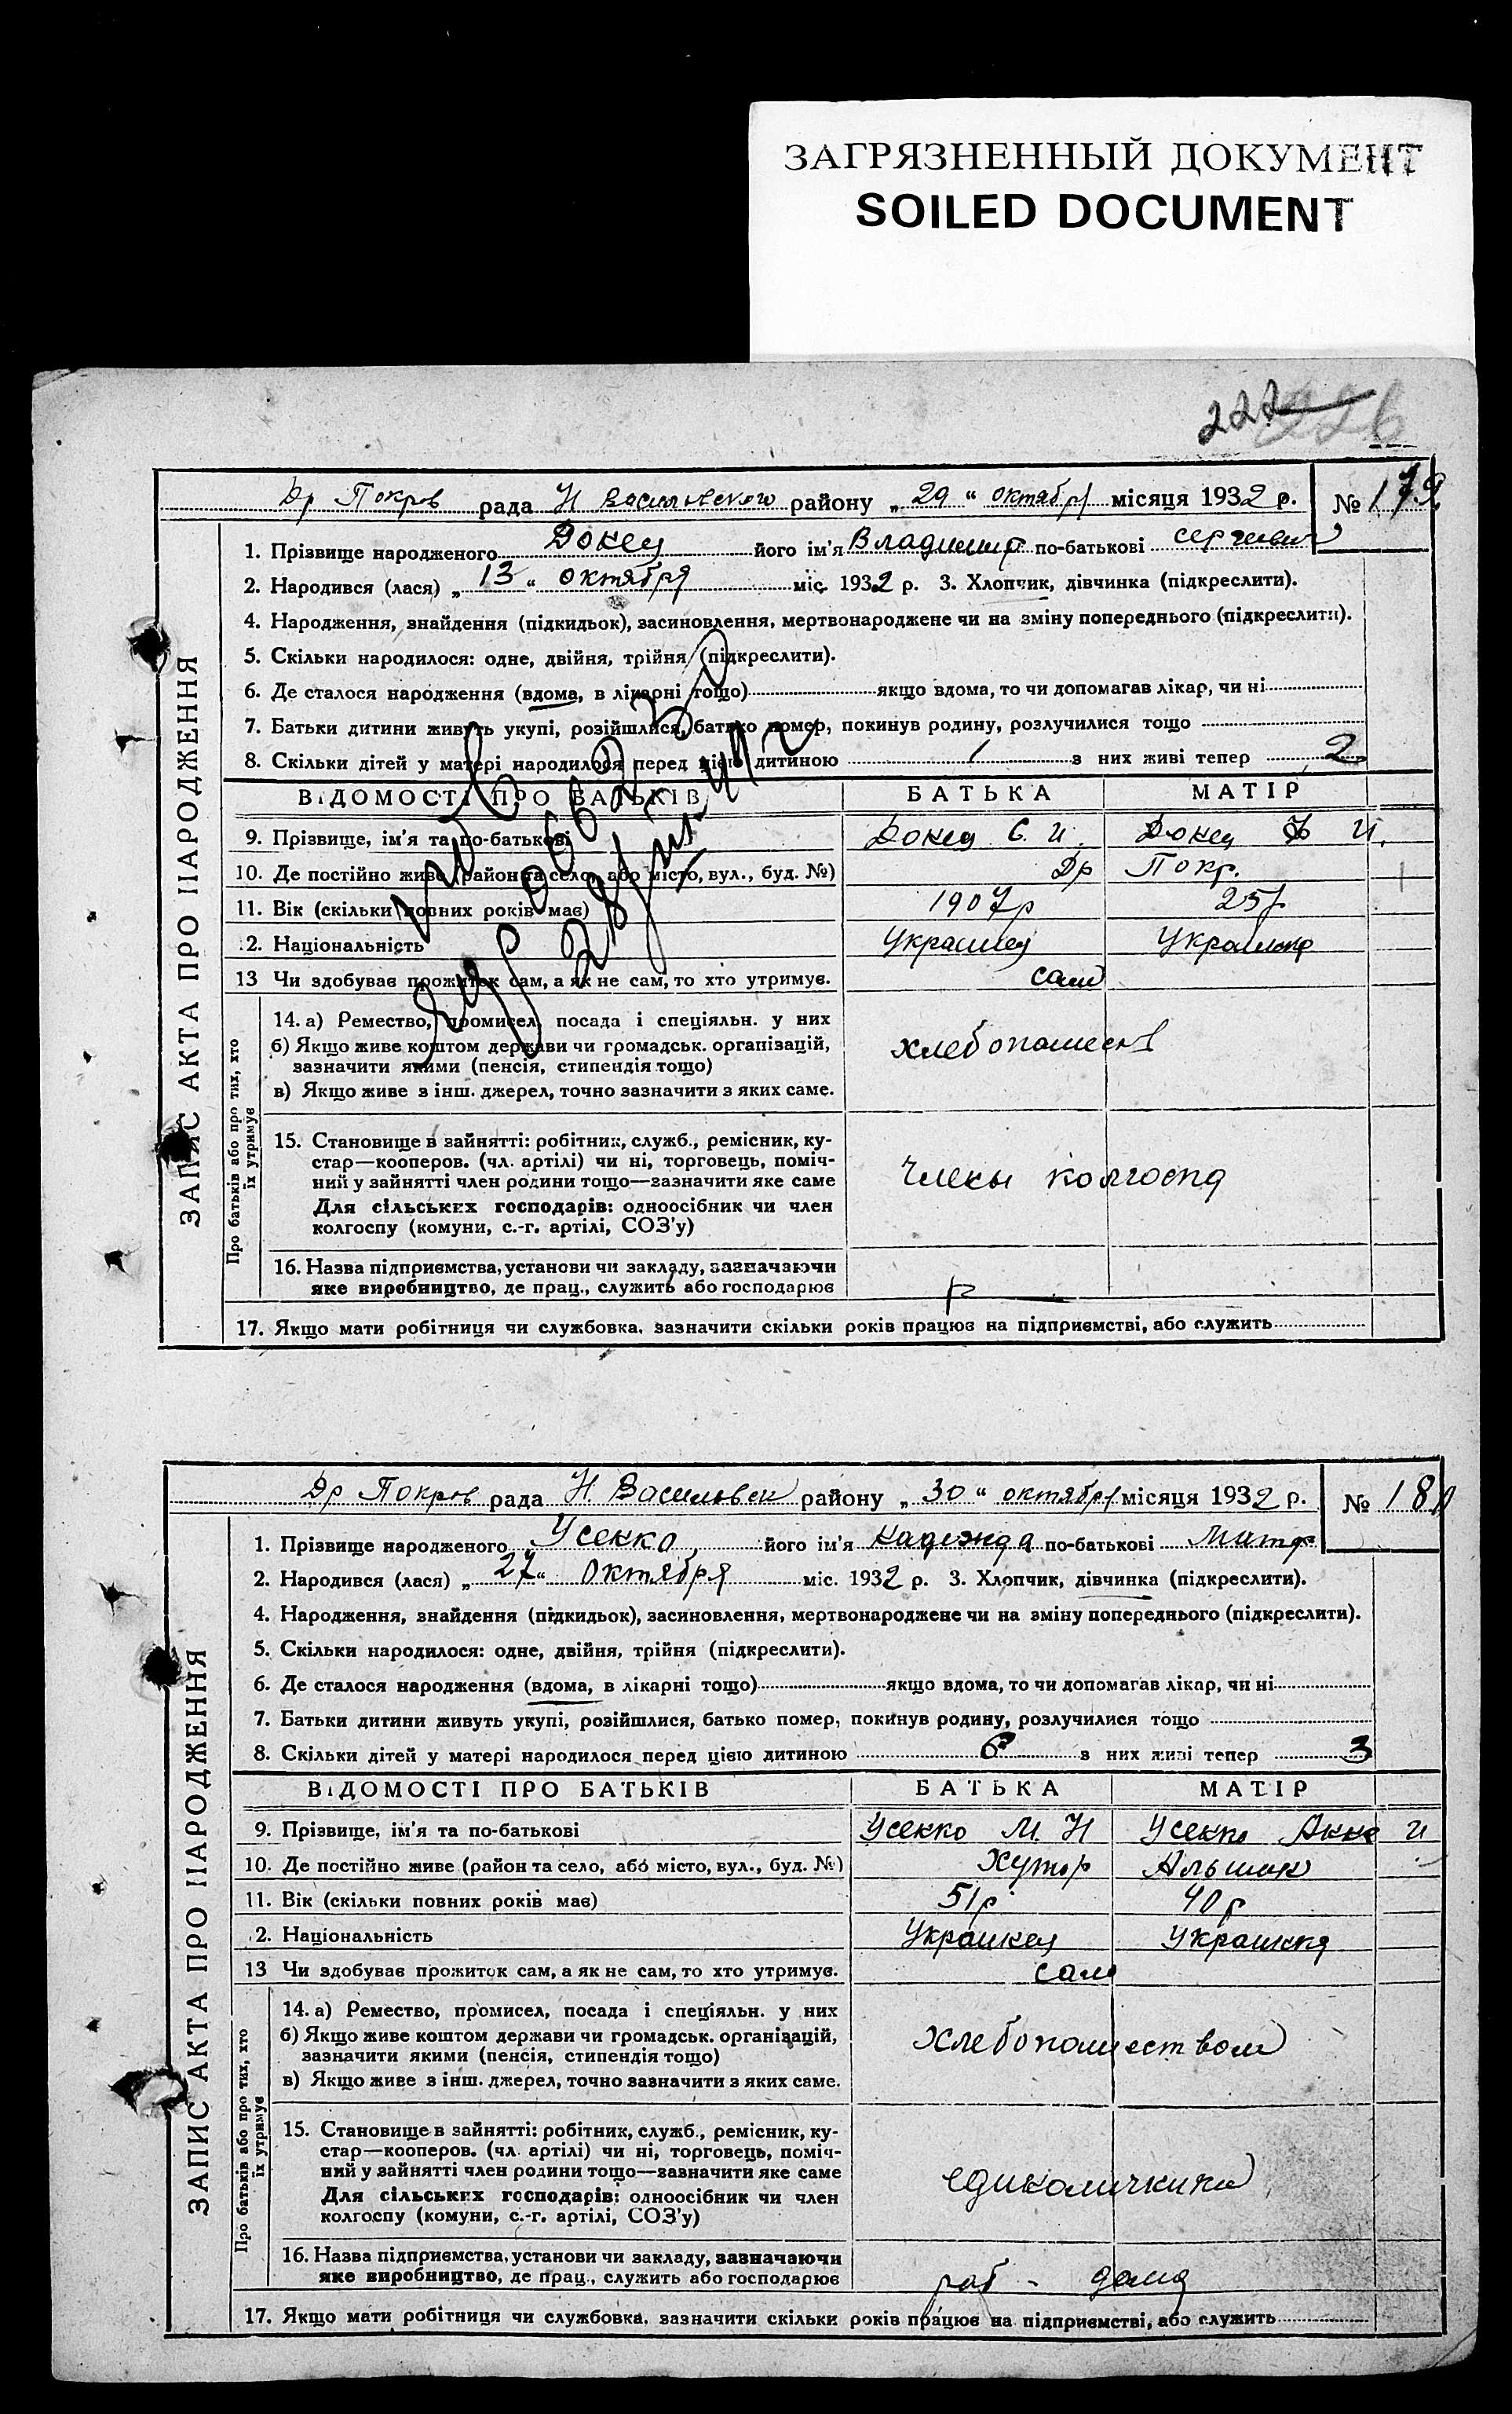 ЗАГРЯЗНЕННЫЙ ДОКУМЕНТ
SOILED DOCUMENT
222 226
Др Покров рада Н Васильевского району „ 29 “ октября місяця 1932 р. № 179
ЗАПИС АКТА ПРО НАРОДЖЕННЯ
1. Прізвище народженого Докец його ім'я Владимир по-батькові Сергеевич
2. Народився (лася) „ 13 “ октября міс. 1932 р. 3. Хлопчик, дівчинка (підкреслити).
4. Народження, знайдення (підкидьок), засиновлення, мертвонароджене чи на зміну попереднього (підкреслити).
5. Скільки народилося: одне, двійня, трійня (підкреслити).
6. Де сталося народження (вдома, в лікарні тощо) якщо вдома, то чи допомагав лікар, чи ні
7. Батьки дитини живуть укупі, розійшлися, батько помер, покинув родину, розлучилися тощо
8. Скільки дітей у матері народилося перед цією дитиною 1 з них живі тепер 2
ВІДОМОСТІ ПРО БАТЬКІВ БАТЬКА МАТІР
9. Прізвище, ім'я та по-батькові Докец С. И. Докец И.
10. Де постійно живе (район та село, або місто, вул., буд. №) Др Покр.
11. Вік (скільки повних років має) 1907р 25р
12. Національність Украинец Украинка
13 Чи здобуває прожиток сам, а як не сам, то хто утримує. сами
Про батьків або про тих, хто їх утримує
14. а) Ремество, промисел, посада і спеціяльн. у них
б) Якщо живе коштом держави чи громадськ. організацій,
зазначити якими (пенсія, стипендія тощо)
в) Якщо живе з інш. джерел, точно зазначити з яких саме.
хлебопашест
15. Становище в зайнятті: робітник, служб., ремісник, ку-
стар—кооперов. (чл. артілі) чи ні, торговець, поміч-
ний у зайнятті член родини тощо—зазначити яке саме
Для сільських господарів: одноосібник чи член
колгоспу (комуни, с.-г. артілі, СОЗ'у)
Члены колгоспа
16. Назва підприємства, установи чи закладу, зазначаючи
яке виробництво, де прац., служить або господарює
17. Якщо мати робітниця чи службовка, зазначити скільки років працює на підприємстві, або служить
Др Покров рада Н. Васильевск району „ 30 “ октября місяця 1932 р. № 180
ЗАПИС АКТА ПРО НАРОДЖЕННЯ
1. Прізвище народженого Усенко його ім'я Надежда по-батькові Митр
2. Народився (лася) „ 27 “ Октября міс. 1932 р. 3. Хлопчик, дівчинка (підкреслити).
4. Народження, знайдення (підкидьок), засиновлення, мертвонароджене чи на зміну попереднього (підкреслити).
5. Скільки народилося: одне, двійня, трійня (підкреслити).
6. Де сталося народження (вдома, в лікарні тощо) якщо вдома, то чи допомагав лікар, чи ні
7. Батьки дитини живуть укупі, розійшлися, батько помер, покинув родину, розлучилися тощо
8. Скільки дітей у матері народилося перед цією дитиною 6 з них живі тепер 3
ВІДОМОСТІ ПРО БАТЬКІВ БАТЬКА МАТІР
9. Прізвище, ім'я та по-батькові Усенко М. Н Усенко Анна И
10. Де постійно живе (район та село, або місто, вул., буд. №) Хутор
11. Вік (скільки повних років має) 51р 40р
12. Національність Украинец Украинка
13 Чи здобуває прожиток сам, а як не сам, то хто утримує. сами
Про батьків або про тих, хто їх утримує
14. а) Ремество, промисел, посада і спеціяльн. у них
б) Якщо живе коштом держави чи громадськ. організацій,
зазначити якими (пенсія, стипендія тощо)
в) Якщо живе з інш. джерел, точно зазначити з яких саме.
хлебопашеством
15. Становище в зайнятті: робітник, служб., ремісник, ку-
стар—кооперов. (чл. артілі) чи ні, торговець, поміч-
ний у зайнятті член родини тощо—зазначити яке саме
Для сільських господарів: одноосібник чи член
колгоспу (комуни, с.-г. артілі, СОЗ'у)
единоличники
16. Назва підприємства, установи чи закладу, зазначаючи
яке виробництво, де прац., служить або господарює
раб - дома
17. Якщо мати робітниця чи службовка, зазначити скільки років працює на підприємстві, або служить